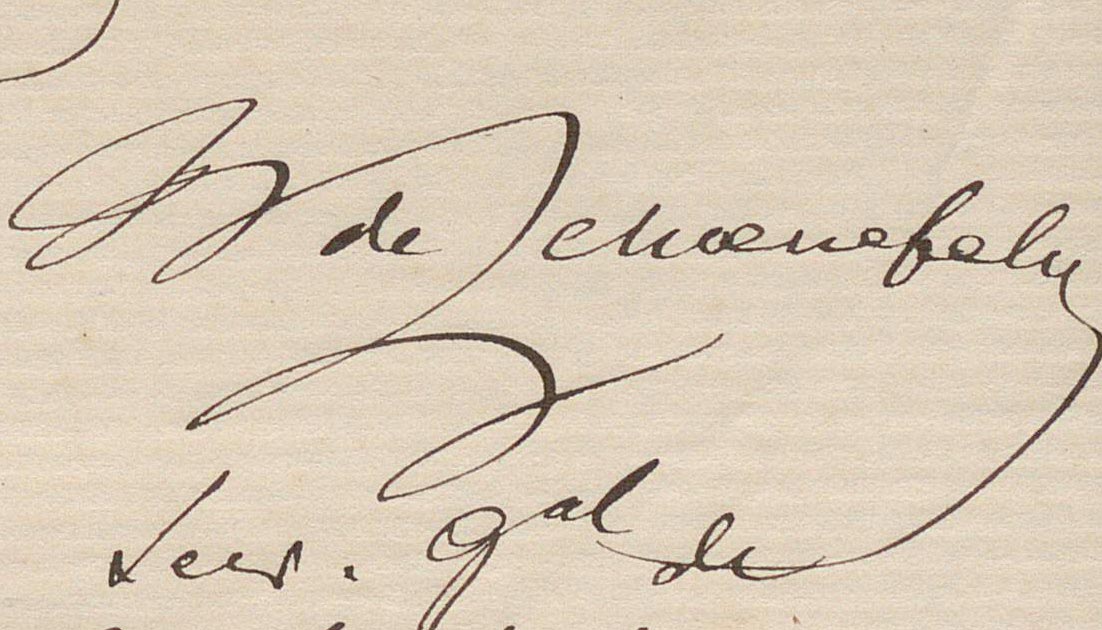 W de Schoenefeld
Secr. Gal de